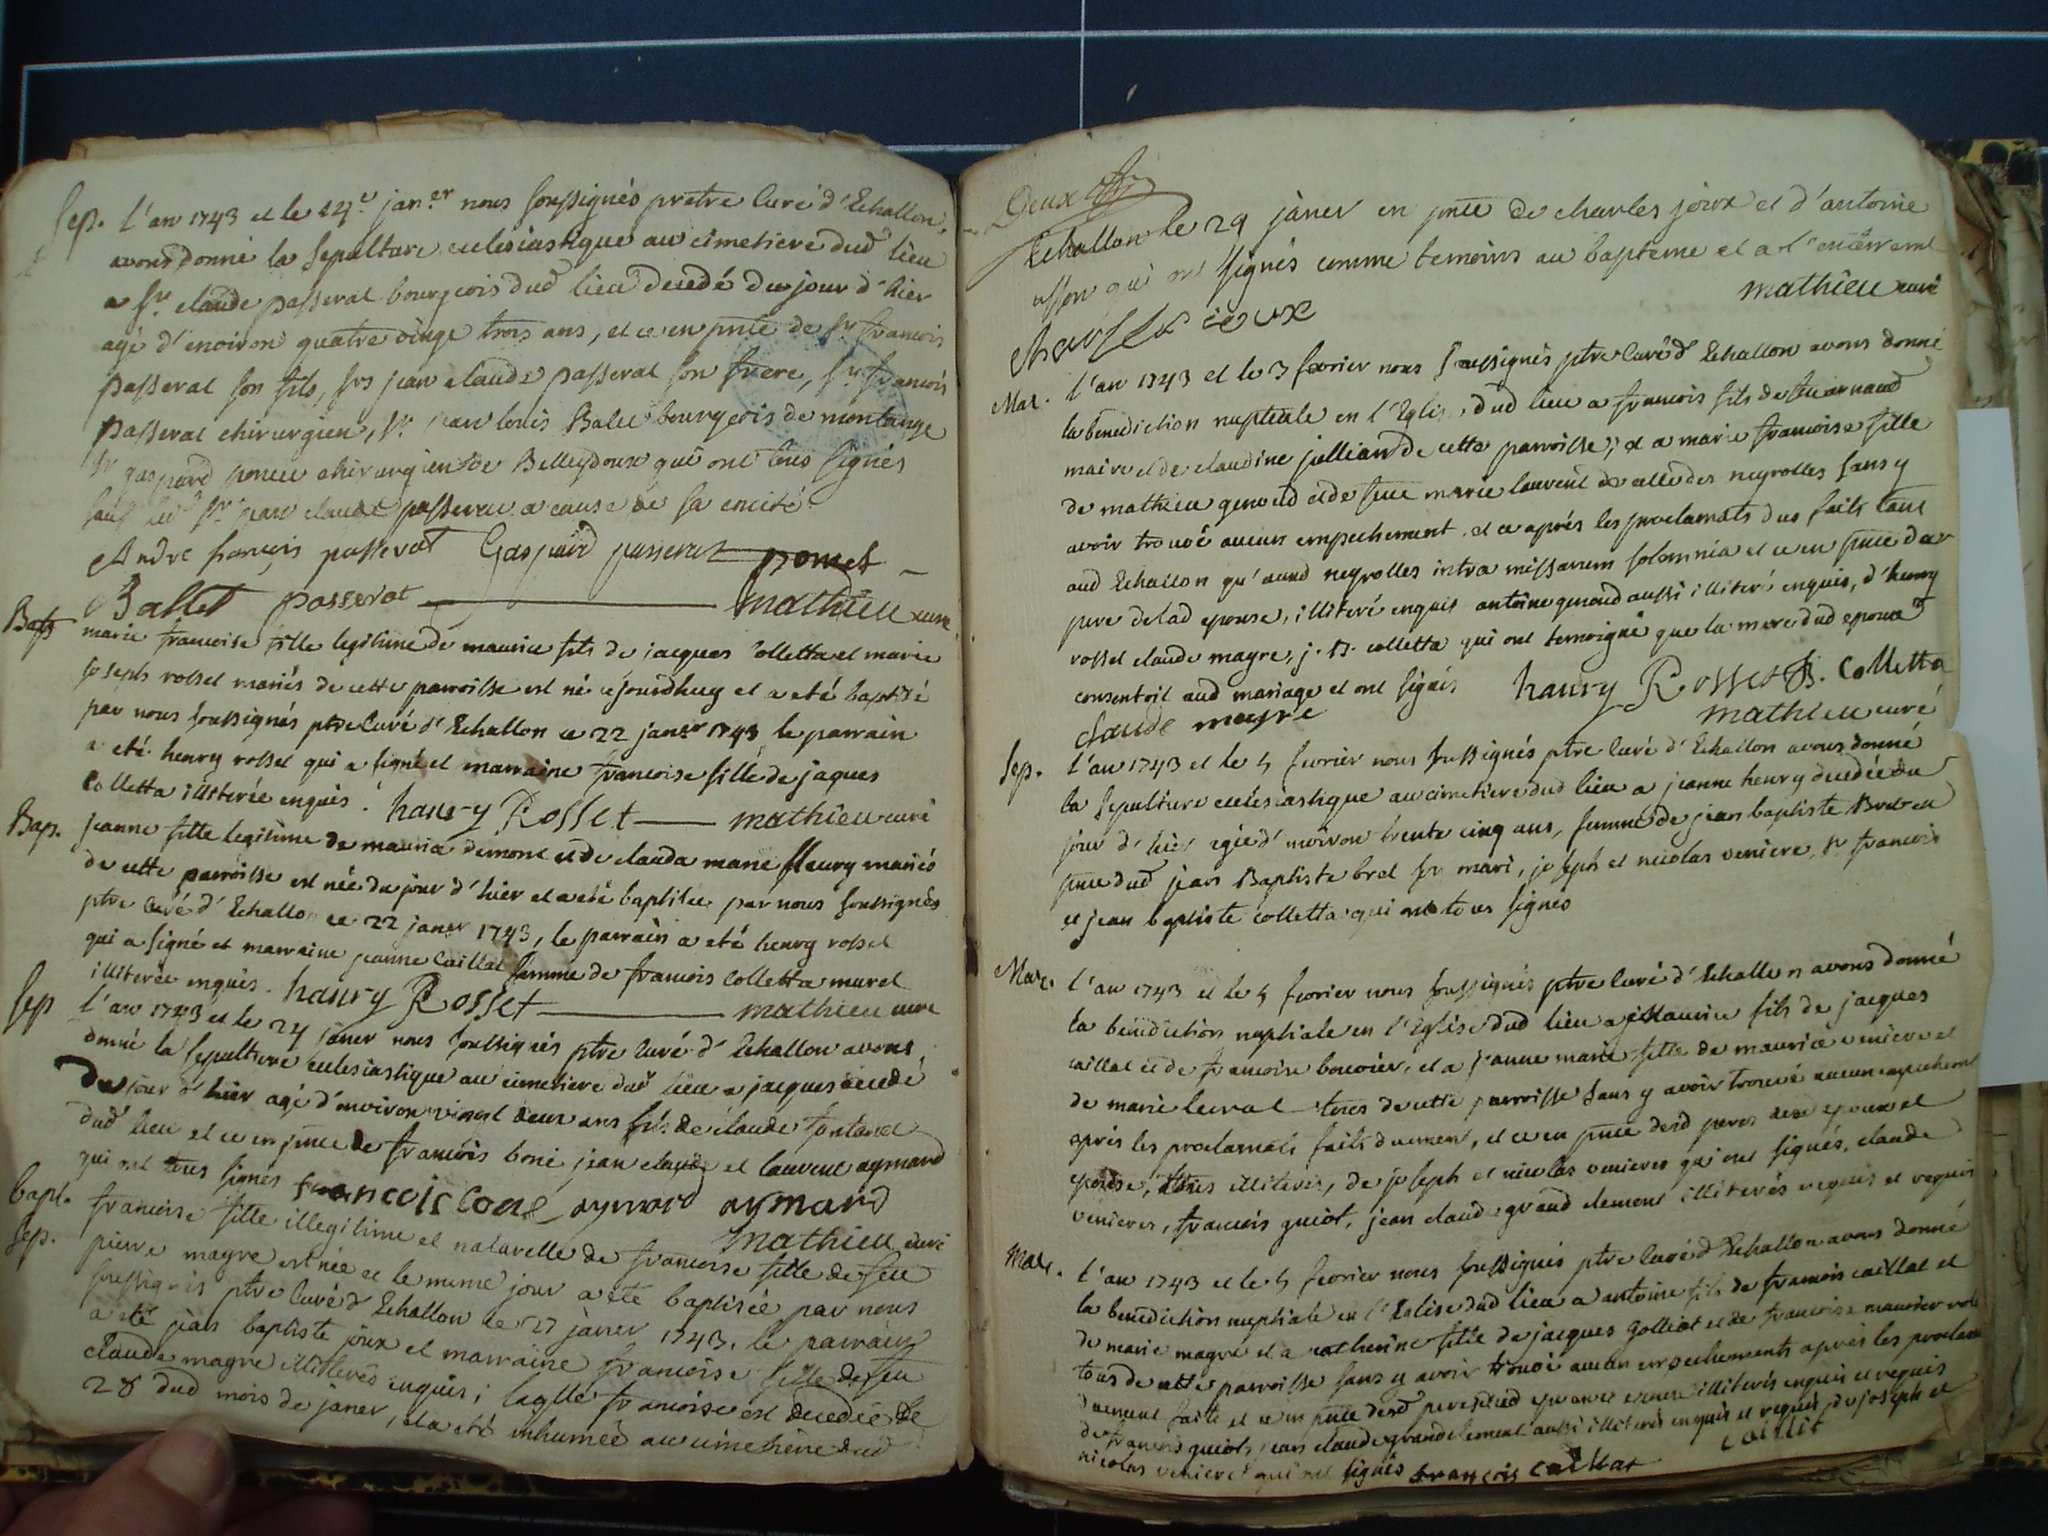 Sep. l'an 1743 et le 14.e jan.er nous soussignés pretre curé d'Echallon,
avons donné la sepulture ecclesiastique au cimetiere dud lieu
a Sr. claude passerat bourgeois dud lieu decedé du jour d'hier
agé d'environ quatre vingt trois ans, et ce en pnce de Sr francois
passerat son fils, Srs jean claude passerat son frere, Sr francois
passerat chirurgien, Sr. jean louis Balet bourgeois de montange
Sr gaspard poncet chirurgien de Belleydoux qui ont tous signés
sauf led Sr jean claude passerat a cause de sa
Andre françois passerat Gaspard passerat
Ballet passerat mathieu curé
Bap. marie francoise fille legitime de maurice fils de jacques Colletta et marie
joseph rosset mariés de cette parroisse est né cejourdhuy et a eté baptisé
par nous soussignés ptre curé d'Echallon ce 22 janer 1743 le parrain
a eté henry rosset qui a signé et marraine francoise fille de jaques
Colletta illiterée enquis. haury Rosset mathieu curé
Bap. jeanne fille legitime de mauria demont et de clauda marie fleury mariés
de cette parroisse est née du jour d'hier et a eté baptisée par nous soussignés
ptre curé d'Echallon ce 22 janer 1743, le parrain a eté henry rosset
qui a signé et marraine jeanne Caillat femme de francois Colletta muret
illiterée enquis. haury Rosset mathieu curé
Sep l'an 1743 et le 24 janer nous soussignés ptre curé d'Echallon avons
donné la sepulture ecclesiastique au cimetiere dud lieu a jacques decedé
Du jour d'hier agé d'environ vingt deux ans fils de claude fontanet
dud lieu et ce en pnce de francois boné, jean claude et laurent aymard
qui ont tous signés francois Boné aymard aymard
mathieu curé
bapt. francoise fille illegitime et naturelle de francoise fille de feu
Sep. pierre magre est née et le meme jour a eté baptisée par nous
soussignés ptre curé d'Echallon le 27 janer 1743. le parrain
a eté jean baptiste joux et marraine francoise fille de feu
claude magre illiterés enquis; laqlle francoise est decedée le
28 dud mois de janer, et a eté inhumée au cimetiere dud
Deux
Echallon le 29 janer en pnce de charles joux et d'antoine
qui ont signés comme temoins au bapteme et a l'enterrement
mathieu curé
joux
Mar. l'an 1743 et le 3 fevrier nous soussignés ptre curé d'Echallon avons donné
la benediction nuptiale en l'Eglise dud lieu a francois fils de feu arnaud
maire et de claudine julliard de cette parroisse, et a marie francoise fille
de mathieu genoud et de feue marie laurent de celle des neyrolles sans y
avoir trouvé aucun empechement et ce aprés les proclamats dus faits tant
aud Echallon qu'aud neyrolles intra missarum solomnia et ce en pnce du
pere de lad epouse, illiteré enquis antoine genoud aussi illiteré enquis, d'henry
rosset claude magre, j. B. colletta qui ont temoigné que la mere dud epoux
consentoit aud mariage et ont signés haury Rosset B. Colletta
claude mayre mathieu curé
Sep. l'an 1743 et le 4 fevrier nous soussignés ptre curé d'Echallon avons donné
la sepulture ecclesiastique au cimetiere dud lieu a jeanne henry decedée du
jour d'hier agée d'environ trente cinq ans, femme de jean baptiste Bret en
pnce dud jean Baptiste bret son mari, joseph et nicolas veniere, Sr francois
et jean baptiste colletta qui ont tous signés
Mar. l'an 1743 et le 4 fevrier nous soussignés ptre curé d'Echallon avons donné
la benediction nuptiale en l'Eglise dud lieu a Maurice fils de jacques
caillat et de francoise bouvier, et a jeanne marie fille de maurice veniere et
de marie tous de cette parroisse sans y avoir trouvé aucun empechement
apris les proclamats faits duement, et ce en pnce desd peres des epoux et
epouse, illiterés, de joseph et nicolas venieres qui ont signés, claude
venieres, francois guiot, jean claude grand clement illiterés enquis et requis
Mar. l'an 1743 et le 4 fevrier nous soussignés ptre curé d'Echallon avons donné
la benediction nuptiale en l'Eglise dud lieu a antoine fils de francois caillat et
de marie magre et a catherine fille de jacques Golliot et de francoise maurier
tous de cette parroisse sans y avoir trouvé aucun empechements apres les proclamats
duement faits et ce en pnce desd peres illiterés enquis et requis
de francois guiot, jean claude grand clement aussi illiterés enquis et requis de joseph et
nicolas veniere qui ont signés francois caillat caillat